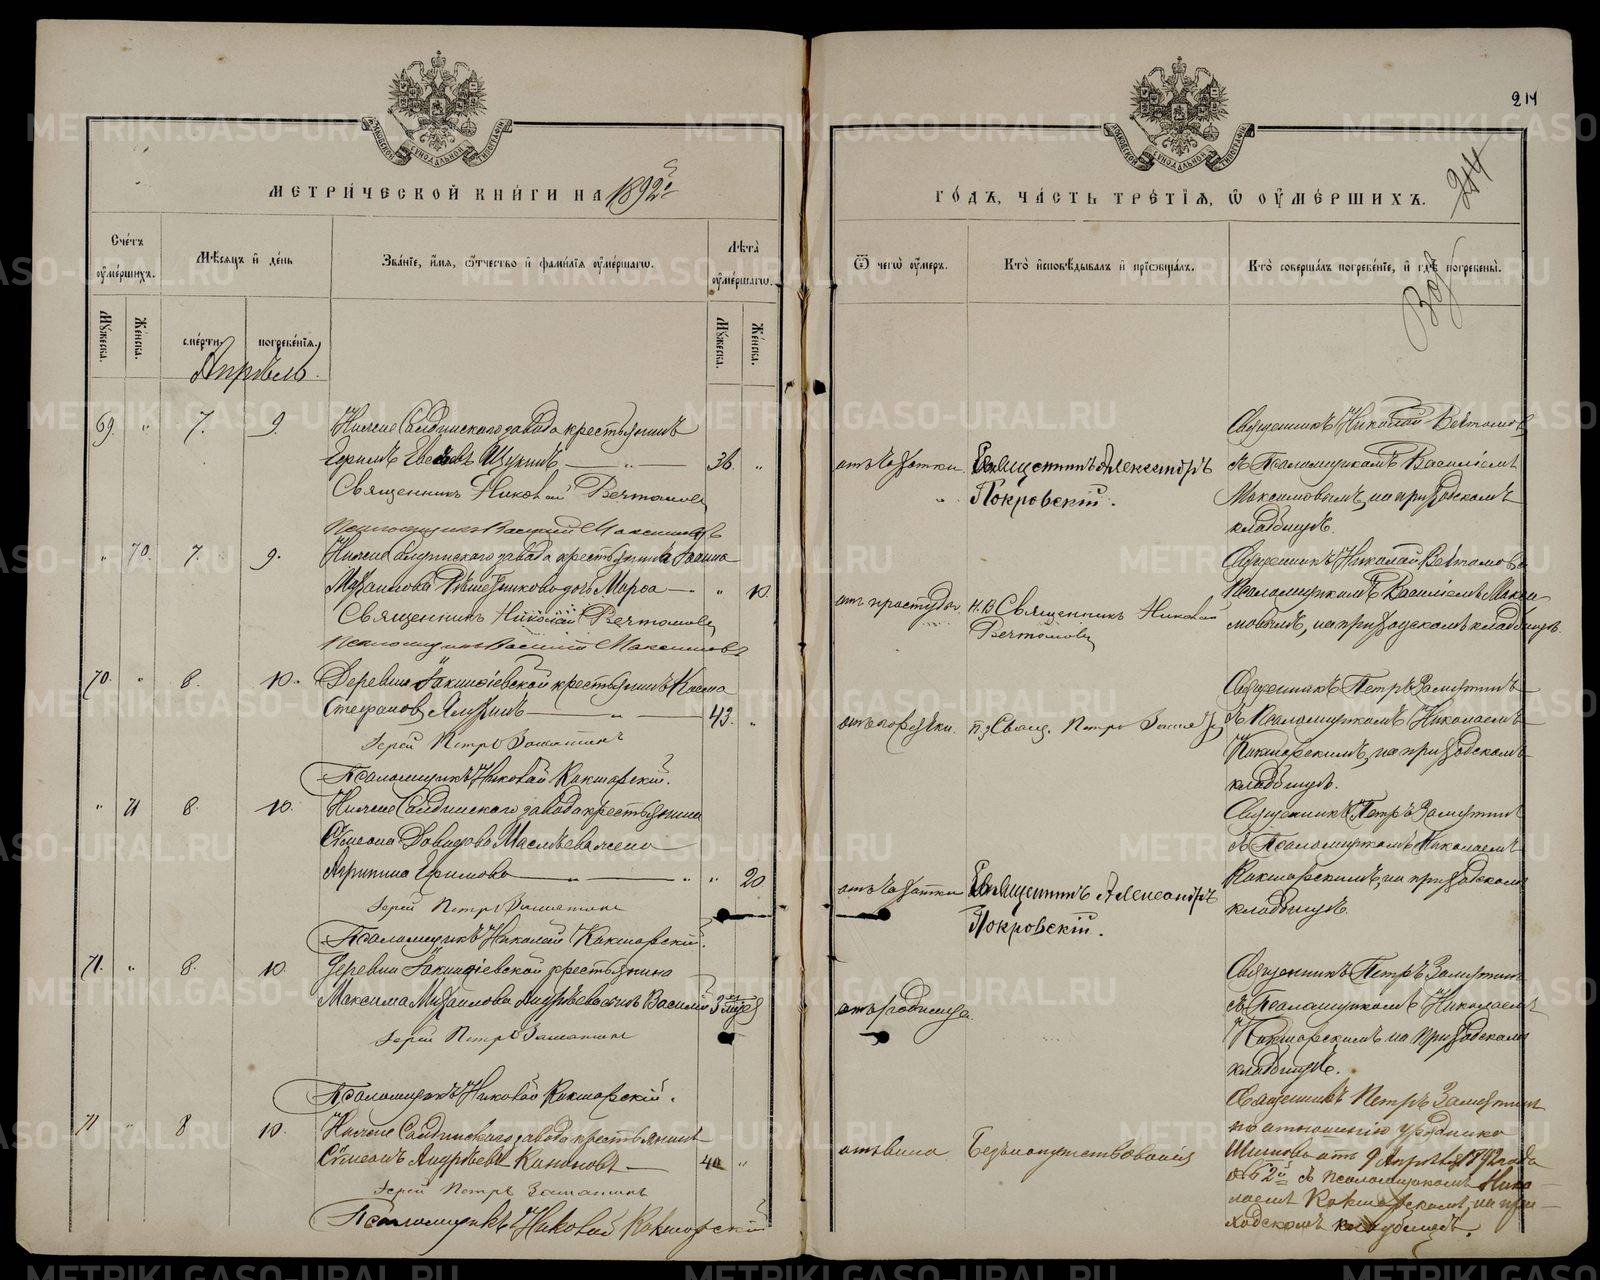 214
214
МЕТРИЧЕСКОЙ КНИГИ НА 1892й
ГОДЪ, ЧАСТЬ ТРЕТІЯ, Ѿ ОУМЕРШИХЪ.
Счетъ оумершихъ.
Мѣсяцъ и день
Званіе, имя, ѿтчество и фамилія оумершагѡ.
Лѣта оумершагѡ.
Ѿ чегѡ оумеръ.
Кто исповѣдывалъ и пріѡбщалъ.
Кто совершалъ погребеніе, и гдѣ погребены.
Мужеска.
Женска.
смерти
погребенія.
Мужеска.
Женска.
Апрѣль.
69. " 7. 9. Нижне Салдинскаго завода крестьянинъ
Ефимъ Щукинъ 36. "
Священникъ Николай Вечтомовъ
Псаломщикъ Василій Максимовъ
отъ чахотки
Священникъ Александръ
Покровскій.
Священникъ Николай Вечтомовъ
съ Псаломщикомъ Василіемъ
Максимовымъ, на приходскомъ
кладбищѣ.
" 70. 7. 9. Нижне Салдинскаго завода крестьянина
дочь Марѳа " 10.
Священникъ Николай Вечтомовъ
Псаломщикъ Василій Максимовъ
отъ простуды
Священникъ Николай
Вечтомовъ
Священникъ Николай Вечтомовъ
Псаломщикомъ Василіемъ Макси
мовымъ, на приходскомъ кладбищѣ.
70. " 8. 10. Деревни Акинѳіевской крестьянинъ Косма
Стефановъ 43. "
Іерей Петръ Замятинъ
Псаломщикъ Николай Кокшарскій.
отъ горячки.
Свящ. Петръ
Священникъ Петръ Замятинъ
съ Псаломщикомъ Николаемъ
Кокшарскимъ, на приходскомъ
кладбищѣ.
" 71 8. 10. Нижне Салдинскаго завода крестьянина
Сѵмеона Давидова жена
Агрипина Ефимова " 20
Іерей Петръ Замятинъ
Псаломщикъ Николай Кокшарскій.
отъ чахотки
Священникъ Александръ
Покровскій.
Священникъ Петръ Замятинъ
съ Псаломщикомъ Николаемъ
Кокшарскимъ, на приходскомъ
кладбищѣ.
71. " 8. 10. Деревни Акинѳіевской крестьянина
Максима Михаилова сынъ Василій 3
Іерей Петръ Замятинъ
Псаломщикъ Николай Кокшарскій.
отъ родимца.
Священникъ Петръ Замятинъ
съ Псаломщикомъ Николаемъ
Кокшарскимъ на приходскомъ
кладбищѣ.
71 8 10. Нижне Салдинскаго завода крестьянинъ
Сѵмеонъ Андрѣевъ Канановъ 40 "
Іерей Петръ Замятинъ
Псаломщикъ Николай Кокшарскій
отъ вина.
Безъ напутствованія
Священникъ Петръ Замятинъ
по отношенію урядника
отъ 9 Апрѣля 1892 года
съ псаломщикомъ Нико-
лаемъ Кокшарскимъ, на при-
ходскомъ кладбищѣ.
METRIKI.GASO-URAL.RU